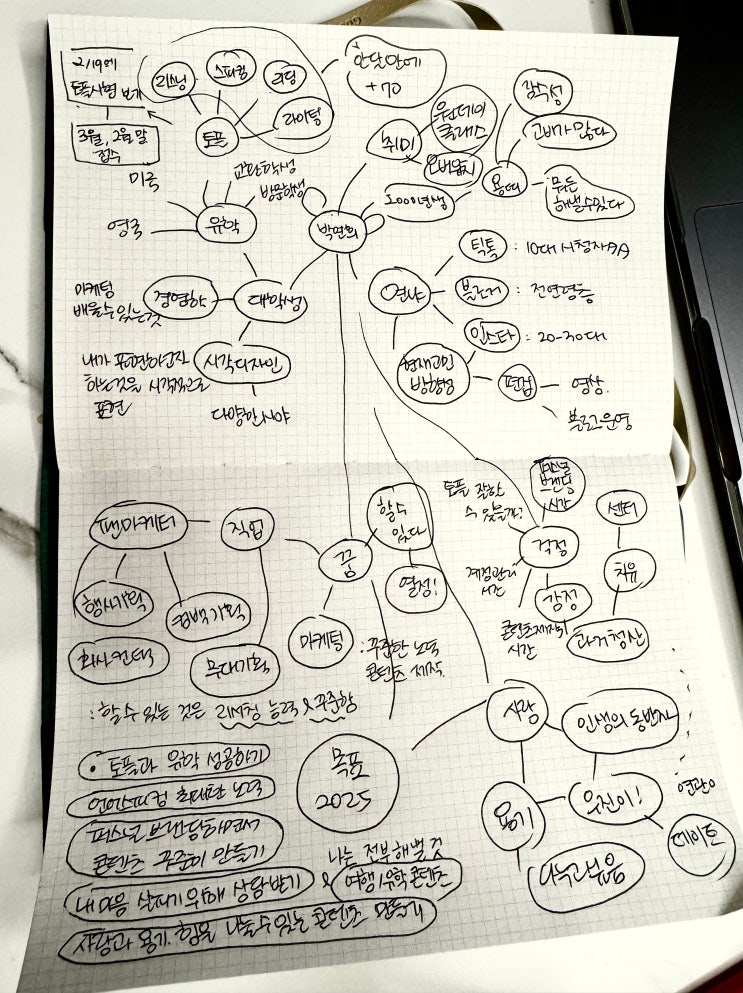 2/19에
토플시험 보기
3월, 2월 말
접수
리스닝
스피킹
리딩
라이팅
토플
한달만에
+70
취미
원데이
클래스
2000년생
용띠
감수성
고비가 많다
뭐든
해낼수있다
미국
영국
유학
교환학생
방문학생
박연희
대학생
경영학
마케팅
배울수있는것
시각디자인
내가 표현하고자
하는것을 시각적으로
표현
다양한시야
틱톡 : 10대 시청자
블로거 : 전연령층
인스타 : 20-30대
현재고민
방향성
편집
영상
블로그운영
팬마케터
직업
꿈
할수
있다
열정!
행사기획
컴백기획
회사컨택
무대기획
마케팅
: 꾸준한 노력
콘텐츠 제작
: 할수있는 것은 리서칭 능력 & 꾸준함
토플 잘할
수 있을까?
퍼스널
브랜딩
시간
걱정
계정관리
시간
감정
콘텐츠제작의
시간
센터
치유
과거청산
목표
2025
• 토플과 유학 성공하기
언어스피킹 최대한 노력
퍼스널 브랜딩하면서
콘텐츠 꾸준히 만들기
내 마음 살피기위해 상담받기
& 나는 전부해낼 것
여행/유학콘텐츠
사랑과 용기, 힘을 나눌수있는 콘텐츠 만들기
사랑
인생의 동반자
용기
우진이!
데이트
나눔과보음